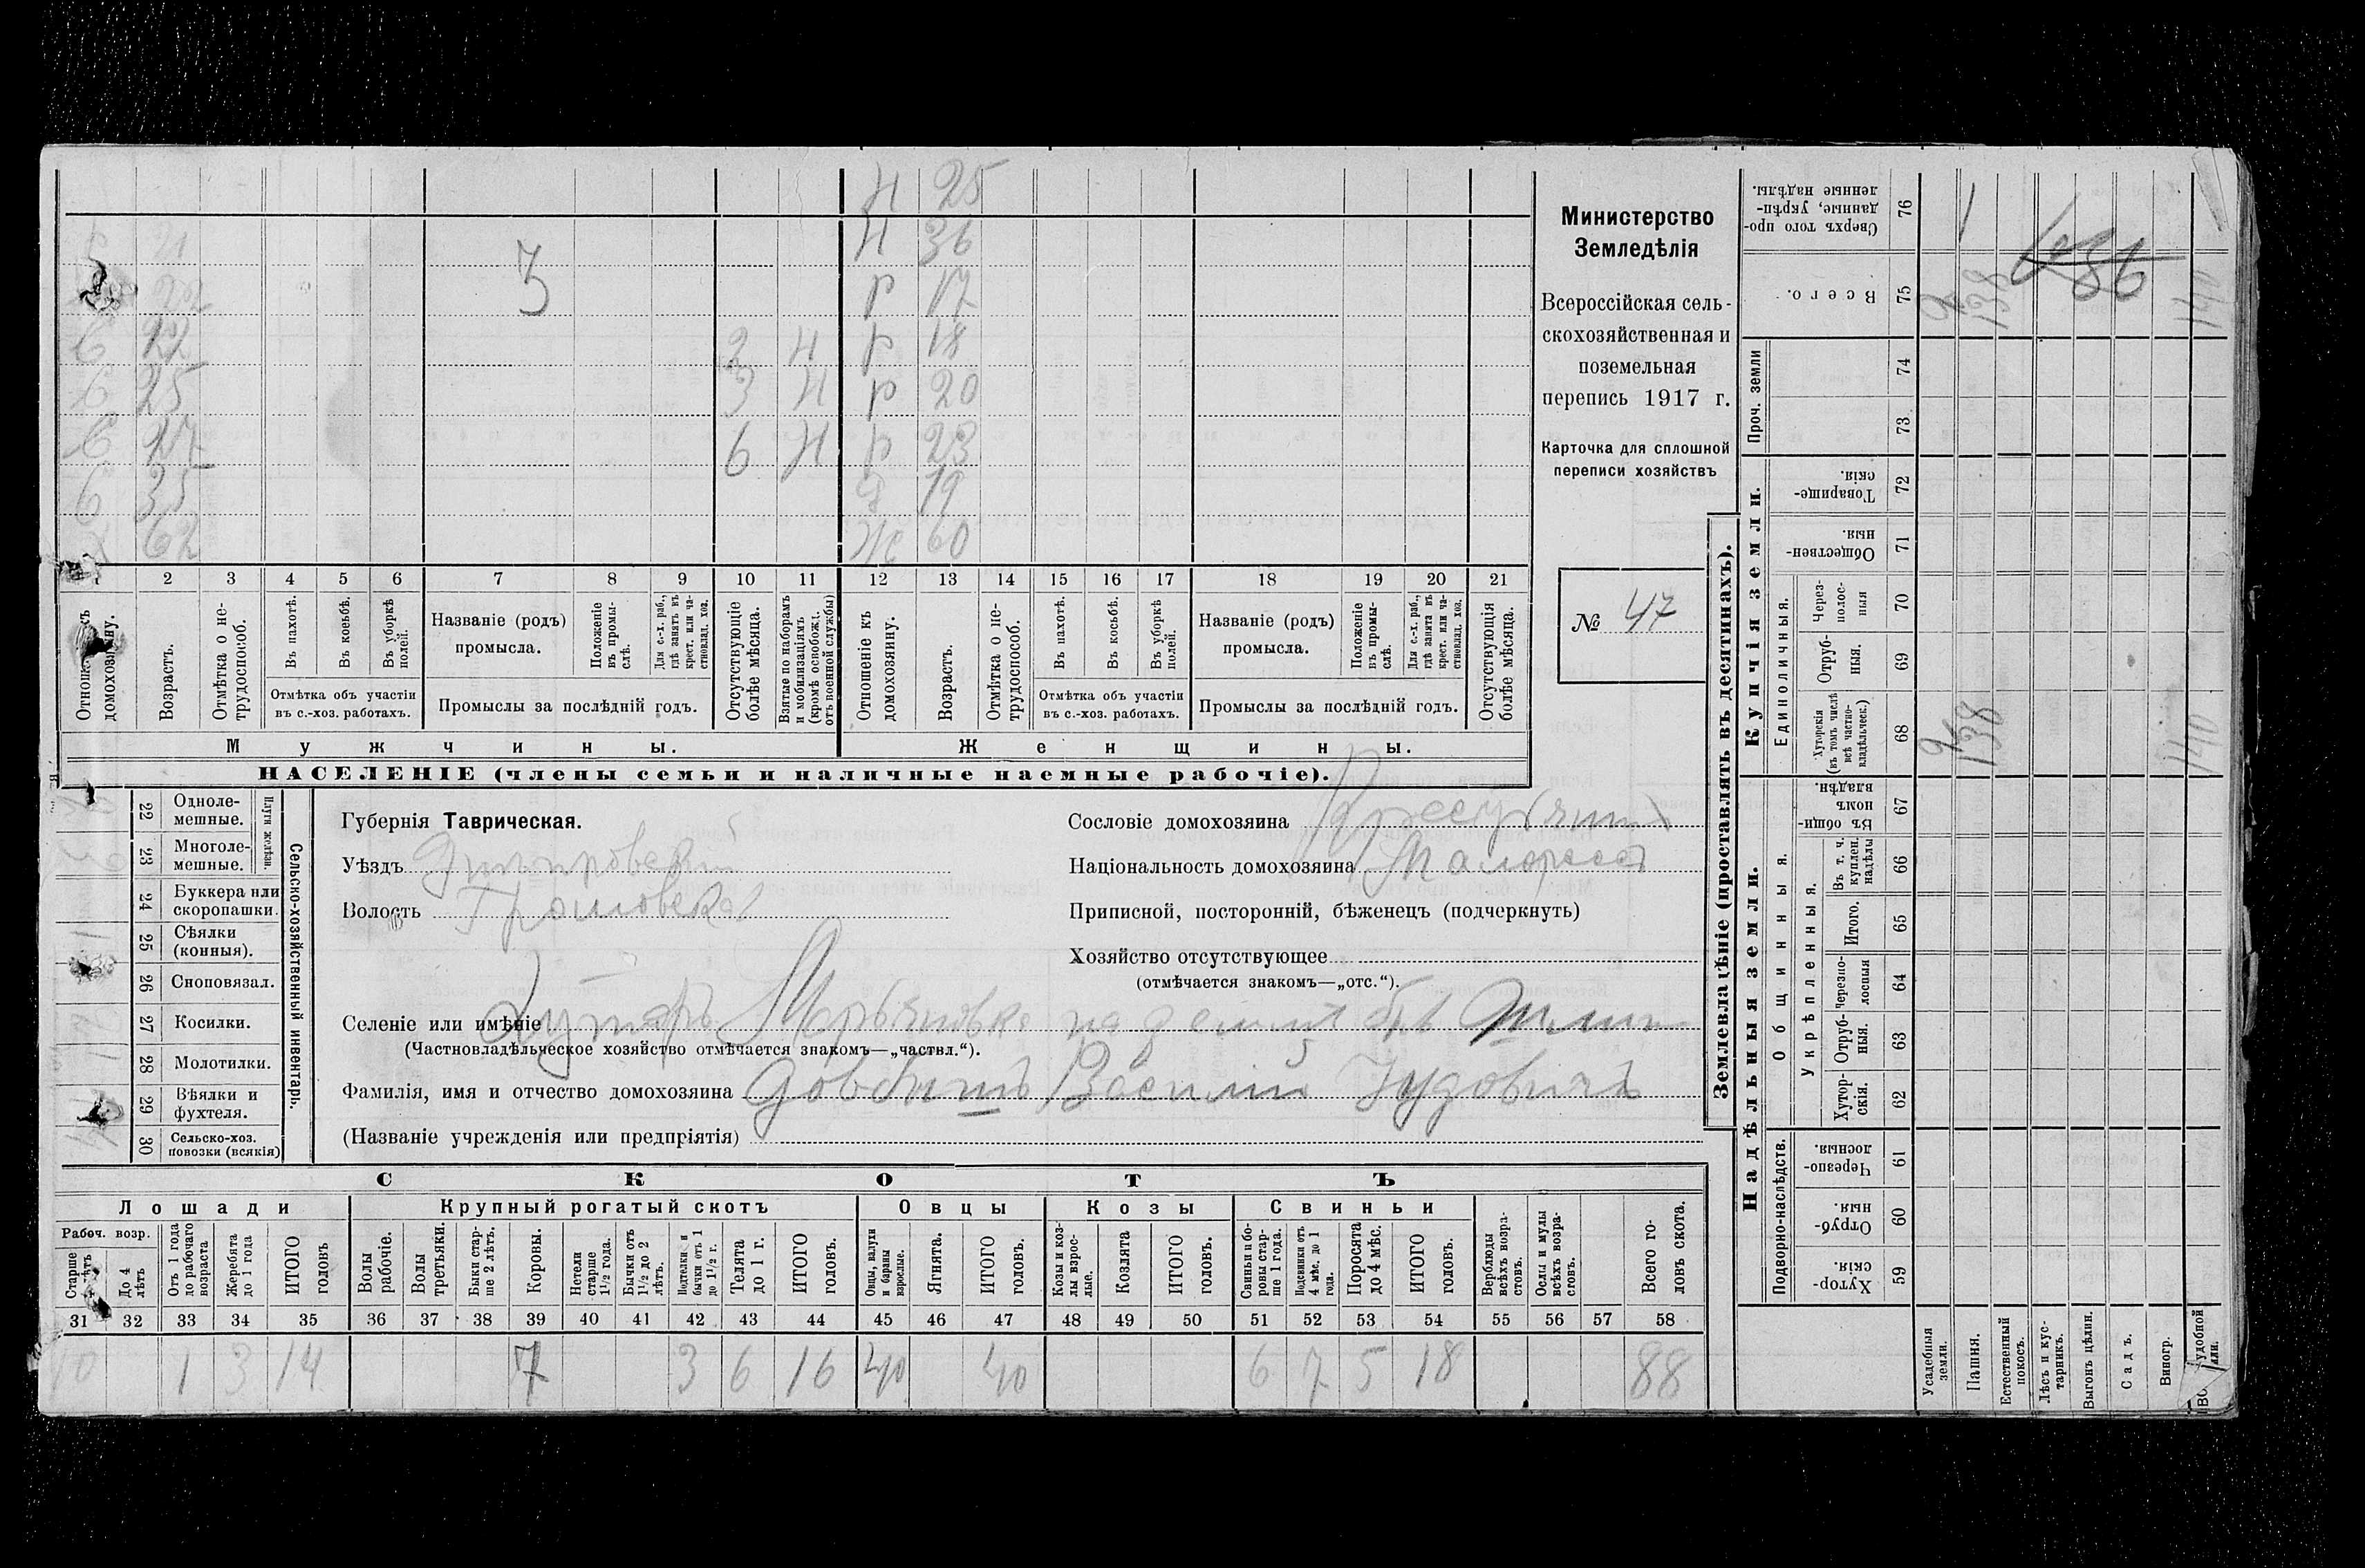 Н 25
21 Н 36
22 З р 17
С 22 2 Н р 18
С 25 3 Н р 20
С 27 6 Н р 23
С 35 19
62 60
2 3 4 5 6 7 8 9 10 11 12 13 14 15 16 17 18 19 20 21
домохозяину.
Возрастъ.
Отмѣтка о не-трудоспособ.
Въ пахотѣ.
Въ косьбѣ.
Въ уборкѣ полей.
Отмѣтка объ участіи
въ с.-хоз. работахъ.
Названіе (родъ)
промысла.
Положеніе въ промы-слѣ.
Для с.-х. раб., гдѣ занятъ въ крест. или ча-стновлад. хоз.
Промыслы за послѣдній годъ.
Отсутствующіе болѣе мѣсяца.
Взятые по наборамъ и мобилизаціямъ (кромѣ освобожд. отъ военной службы)
Отношеніе къ домохозяину.
Возрастъ.
Отмѣтка о не-трудоспособ.
Въ пахотѣ.
Въ косьбѣ.
Въ уборкѣ полей.
Отмѣтка объ участіи
въ с.-хоз. работахъ.
Названіе (родъ)
промысла.
Положеніе въ промы-слѣ.
Для с.-х. раб., гдѣ занята въ крест. или ча-стновлад. хоз.
Промыслы за послѣдній годъ.
Отсутствующія болѣе мѣсяца.
Мужчины.
Женщины.
НАСЕЛЕНІЕ (члены семьи и наличные наемные рабочіе).
Министерство
Земледѣлія
Всероссійская сель-
скохозяйственная и
поземельная
перепись 1917 г.
Карточка для сплошной
переписи хозяйствъ
№ 47
Сельско-хозяйственный инвентарь.
Плуги желѣзн.
22 Одноле-
мешные.
23 Многоле-
мешные.
24 Буккера или
скоропашки.
25 Сѣялки
(конныя).
26 Сноповязал.
27 Косилки.
28 Молотилки.
29 Вѣялки и
фухтеля.
30 Сельско-хоз.
повозки (всякія)
Губернія Таврическая.
Уѣздъ Днѣпровскій
Волость
Сословіе домохозяина Крестьянинъ
Національность домохозяина Малороссъ
Приписной, посторонній, бѣженецъ (подчеркнуть)
Хозяйство отсутствующее
(отмѣчается знакомъ—„отс.“).
Селеніе или имѣніе Хуторъ
(Частновладѣльческое хозяйство отмѣчается знакомъ—„частвл.“).
Фамилія, имя и отчество домохозяина Довбышъ Василій Іудовичъ
(Названіе учрежденія или предпріятія)
СКОТЪ
Лошади
Крупный рогатый скотъ
Овцы
Козы
Свиньи
Рабоч. возр.
Старше
До 4 лѣтъ
Отъ 1 года до рабочаго возраста
Жеребята до 1 года
ИТОГО головъ
Волы рабочіе.
Волы третьяки.
Быки стар-ше 2 лѣтъ.
Коровы.
Нетели старше 1½ года.
Бычки отъ 1½ до 2 лѣтъ.
Подтелки и бычки отъ 1 до 1½ г.
Телята до 1 г.
ИТОГО головъ.
Овцы, валухи и бараны взрослые.
Ягнята.
ИТОГО головъ.
Козы и коз-лы взрос-лые.
Козлята
ИТОГО головъ.
Свиньи и бо-ровы стар-ше 1 года.
Подсвинки отъ 4 мѣс. до 1 года.
Поросята до 4 мѣс.
ИТОГО головъ.
Верблюды всѣхъ возра-стовъ.
Ослы и мулы всѣхъ возра-стовъ.
Всего го-ловъ скота.
31 32 33 34 35 36 37 38 39 40 41 42 43 44 45 46 47 48 49 50 51 52 53 54 55 56 57 58
10 1 3 14 7 3 6 16 40 40 6 7 5 18 88
Землевладѣніе (проставлять въ десятинахъ).
Надѣльныя земли.
Купчія земли.
Проч. земли
Подворно-наслѣдств.
Общинныя.
Укрѣпленныя.
Единоличныя.
Сверхъ того про-данные, укрѣп-ленные надѣлы. 76 1
86
Всего. 75 2 138 140
74
73
Товарище-скія. 72
Обществен-ныя. 71
Через-полос-ныя 70
Отруб-ныя. 69
Хуторскія (въ томъ числѣ всѣ частно-владѣльческ.) 68 2 138 140
Въ общи-номъ владѣн. 67
Въ т. ч. куплен. надѣлы 66
Итого. 65
Черезпо-лосныя 64
Отруб-ныя. 63
Хутор-скія. 62
Черезпо-лосныя. 61
Отруб-ныя. 60
Хутор-скія. 59
Усадебныя земли.
Пашня.
Естественный покосъ.
Лѣсъ и кус-тарникъ.
Выгонъ цѣлин.
Садъ.
Виногр.
удобной